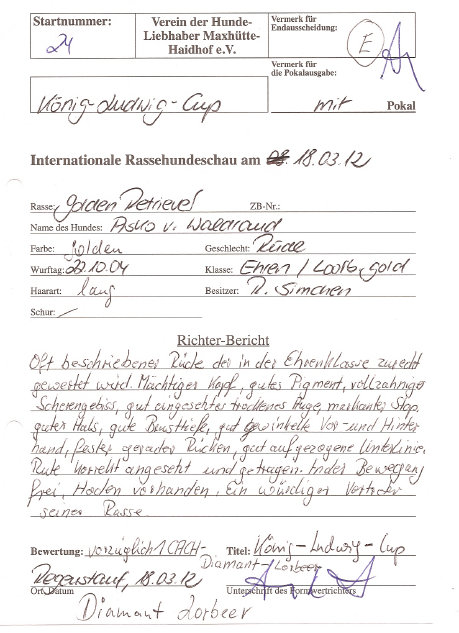 Startnummer:
24
Verein der Hunde-
Liebhaber Maxhütte-
Haidhof e.V.
Vermerk für
Endausscheidung:
E
Vermerk für
die Pokalausgabe:
König-Ludwig-Cup
mit Pokal
Internationale Rassehundeschau am 18.03.12
Rasse: Golden Retriever ZB-Nr.:
Name des Hundes: Asko v. Waldrand
Farbe: golden Geschlecht: Rüde
Wurftag: 22.10.04 Klasse: Ehren / Lorb. gold
Haarart: lang Besitzer: R. Simchen
Schur: /
Richter-Bericht
Oft beschriebener Rüde der in der Ehrenklasse zurecht
gewertet wird. Mächtiger Kopf, gutes Pigment, vollzahniges
Scherengebiss, gut eingesetztes trockenes Auge, markanter Stop,
guter Hals, gute Brusttiefe, gut gewinkelte Vor- und Hinter
hand, fester gerader Rücken, gut aufgezogene Unterlinie.
Rute korrekt angesetzt und getragen. In der Bewegung
frei, Hoden vorhanden. Ein würdiger Vertreter
seiner Rasse.
Bewertung: vorzüglich 1 CACH- Titel: König-Ludwig-Cup
Diamant-Lorbeer
Regenstauf, 18.03.12
Ort, Datum Unterschrift des Formwertrichters
Diamant Lorbeer